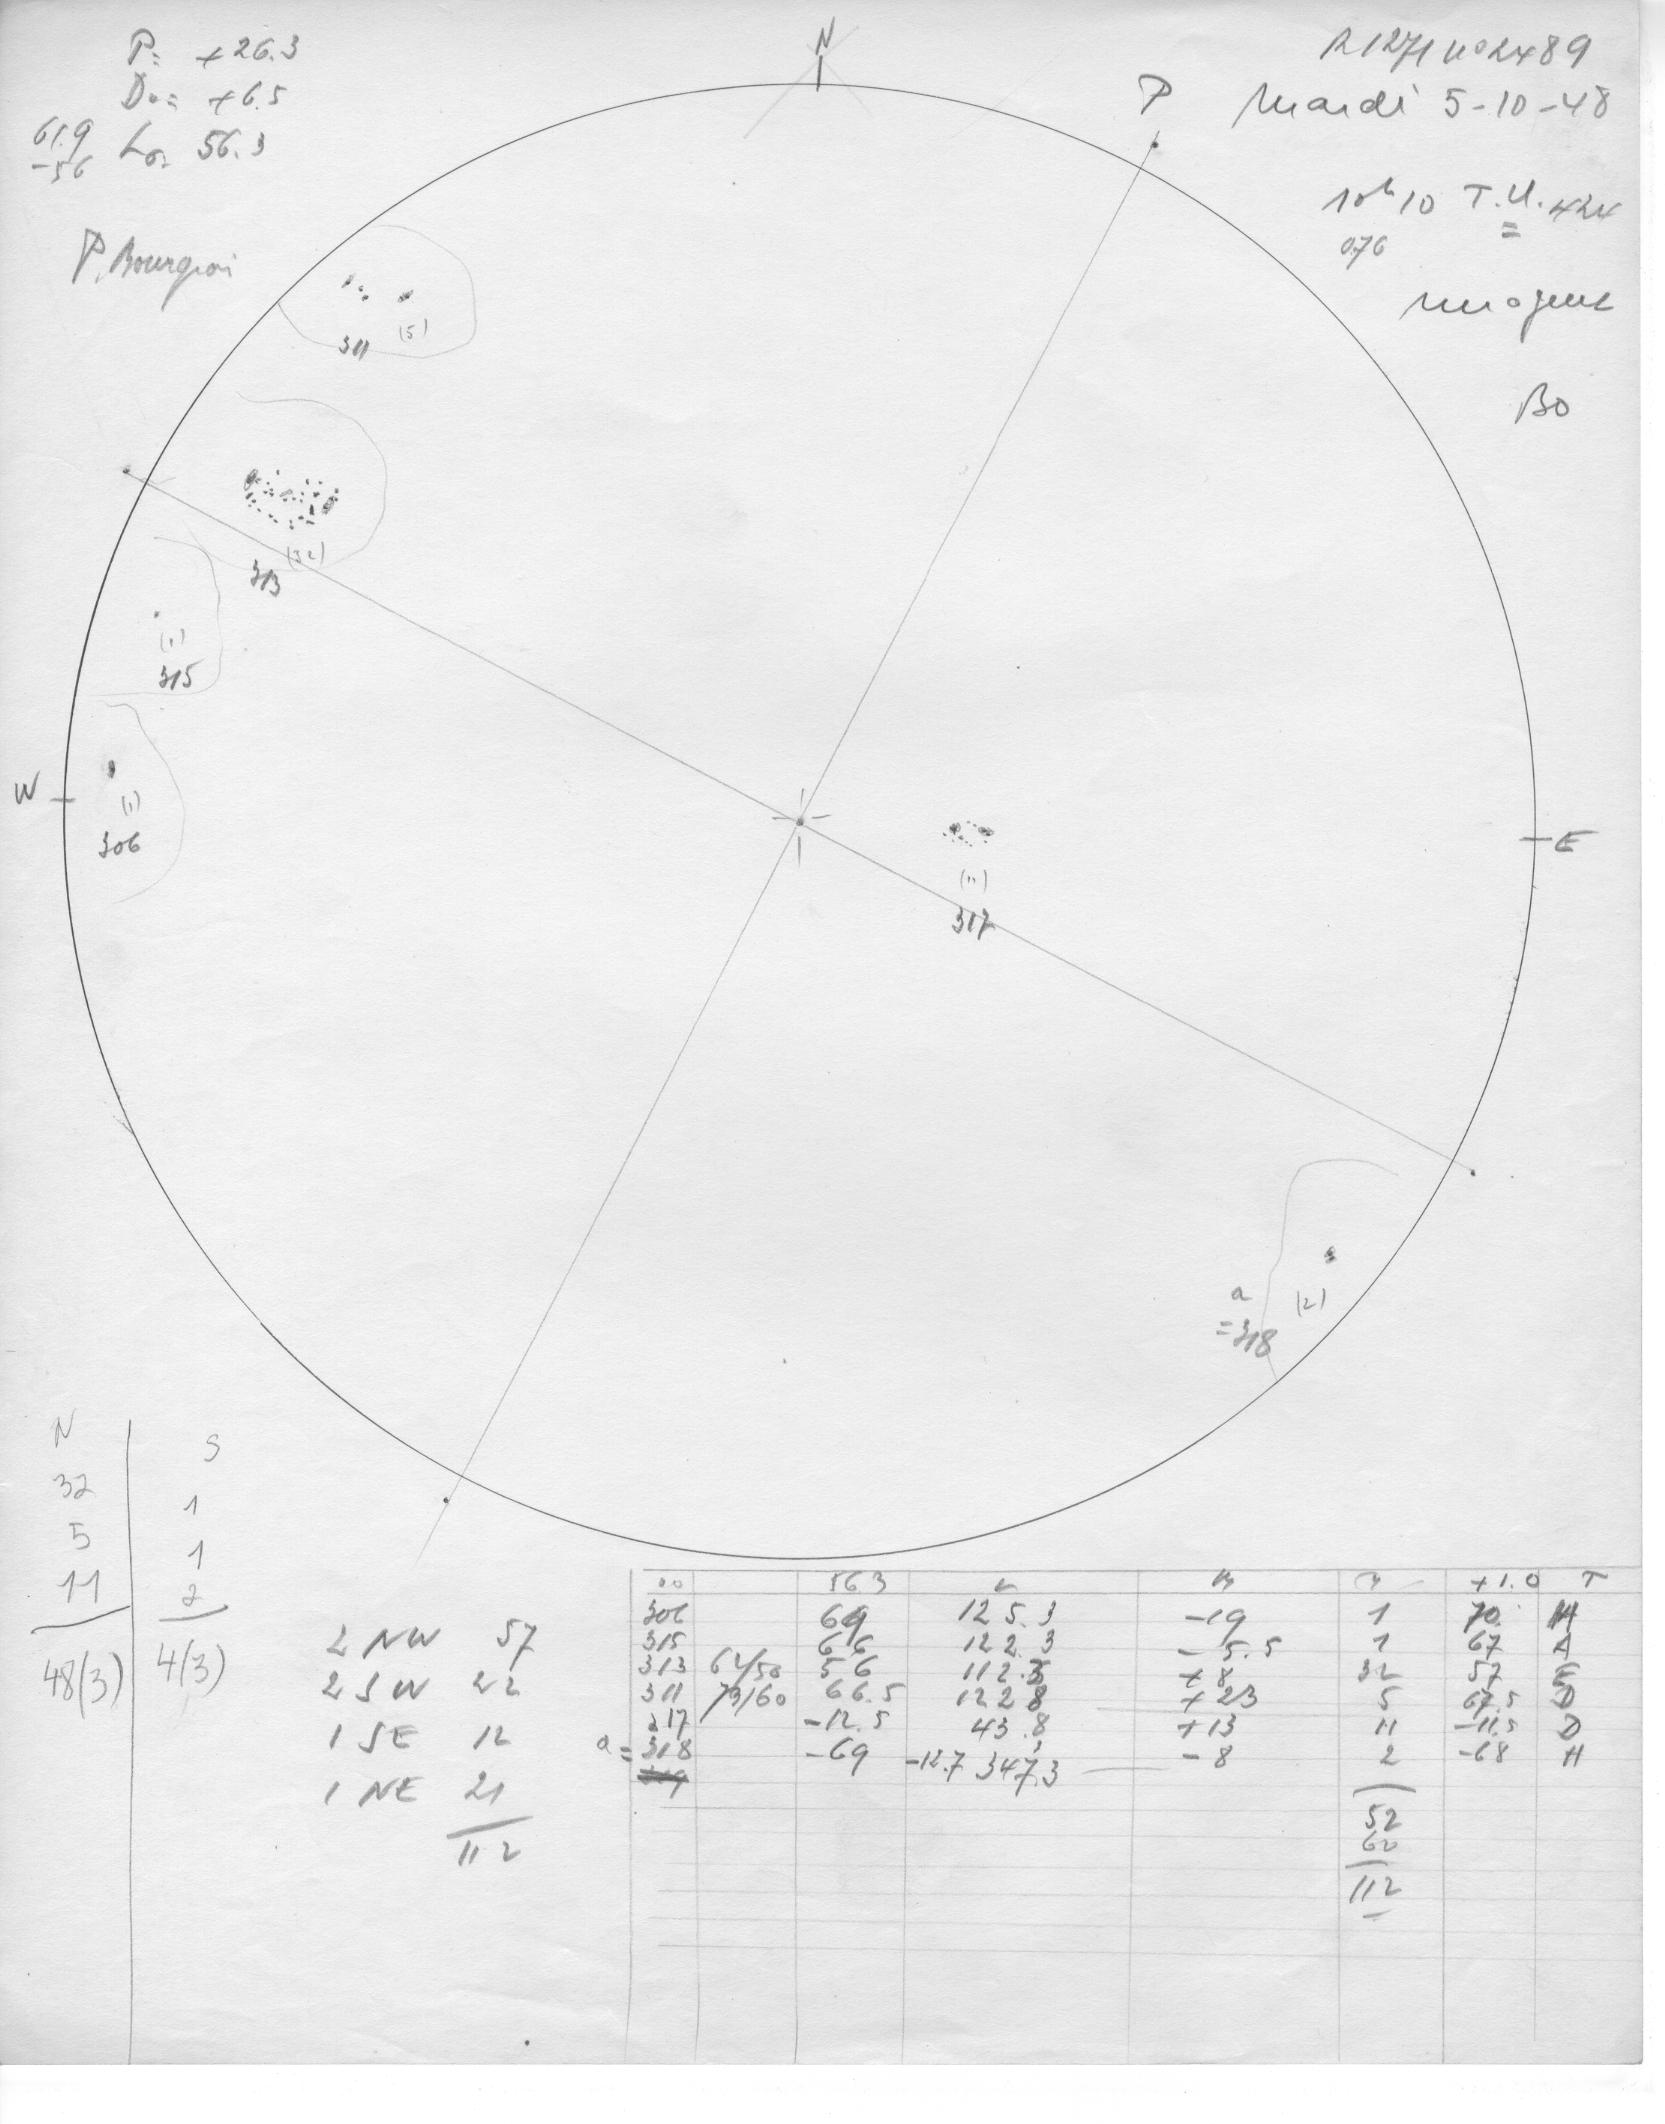 P= +26.3
Do= +6.5
61.9 Lo= 56.3
-56
N
P
R1271 no2489
Mardi 5-10-48
10h10 T.U. 424
0.76
nuageux
Bo
311 (5)
(32)
313
(1)
315
W
(1)
306
E
(11)
317
a (2)
=318
N S
32 1
5 1
11 2
48(3) 4(3)
2 NW 57
2 SW 22
1 SE 12
1 NE 21
112
56.3 +1.0 T
306 69 125.3 -19 1 70. H
315 66 122.3 -5.5 1 67 A
313 62/50 56 112.3 +8 32 57 E
311 73/60 66.5 122.8 +23 5 67.5 D
317 -12.5 43.8 +13 11 -11.5 D
a = 318 -69 -12.7 347.3 -8 2 -68 H
52
60
112